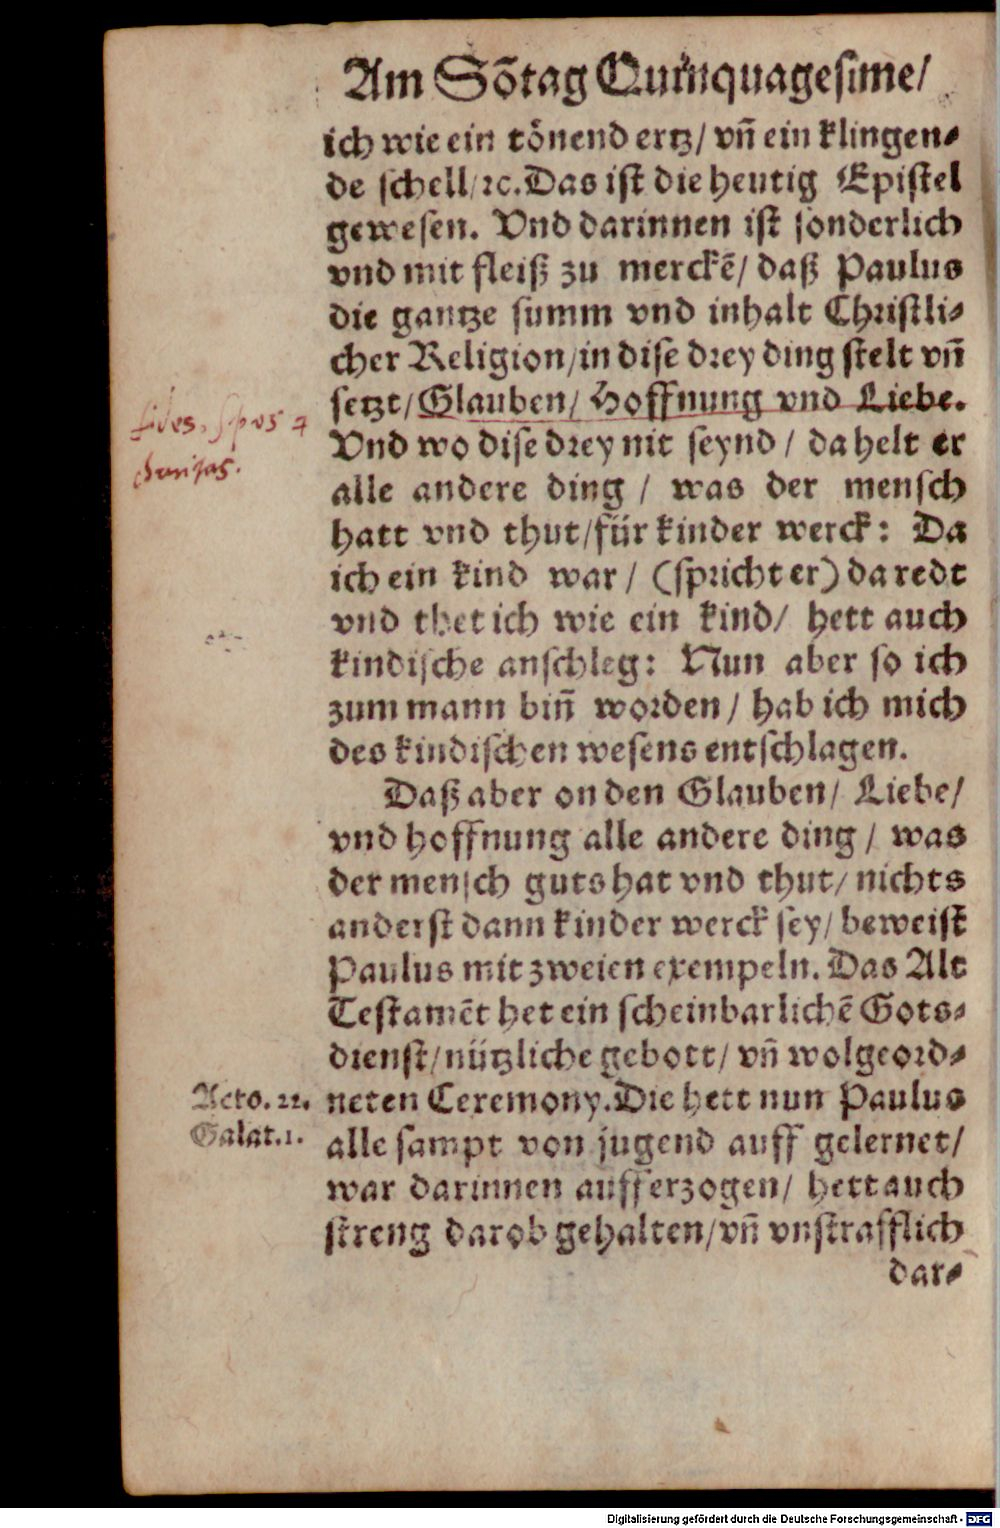 Am Sõtag Quinquagesime/
ich wie ein tönend ertz/ vñ ein klingen⸗
de schell/ ꝛc. Das ist die heutig Epistel
gewesen. Vnd darinnen ist sonderlich
vnd mit fleiß zu merckẽ/ daß Paulus
die gantze summ vnd inhalt Christli⸗
cher Religion/ in dise drey ding stelt vñ
setzt/ Glauben/ Hoffnung vnd Liebe.
fides, spes ⁊
charitas.
Vnd wo dise drey nit seynd / da helt er
alle andere ding / was der mensch
hatt vnd thut/ für kinder werck: Da
ich ein kind war / (spricht er) da redt
vnd thet ich wie ein kind/ hett auch
kindische anschleg: Nun aber so ich
zum mann biñ worden / hab ich mich
des kindischen wesens entschlagen.
Daß aber on den Glauben/ Liebe/
vnd hoffnung alle andere ding / was
der mensch guts hat vnd thut/ nichts
anderst dann kinder werck sey/ beweist
Paulus mit zweien exempeln. Das Alt
Testamẽt het ein scheinbarlichẽ Gots⸗
dienst/ nützliche gebott/ vñ wolgeord⸗
Acto. 22.
Galat. 1.
neten Ceremony. Die hett nun Paulus
alle sampt von jugend auff gelernet/
war darinnen aufferzogen/ hett auch
streng darob gehalten/ vñ vnstrafflich
dar⸗
Digitalisierung gefördert durch die Deutsche Forschungsgemeinschaft - DFG